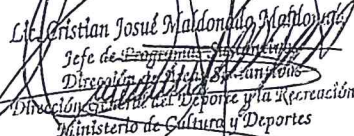 Lic. Cristian Josué Maldonado
Jefe de Programas Sustantivos
Dirección de
Dirección General del Deporte y la Recreación
Ministerio de Cultura y Deportes